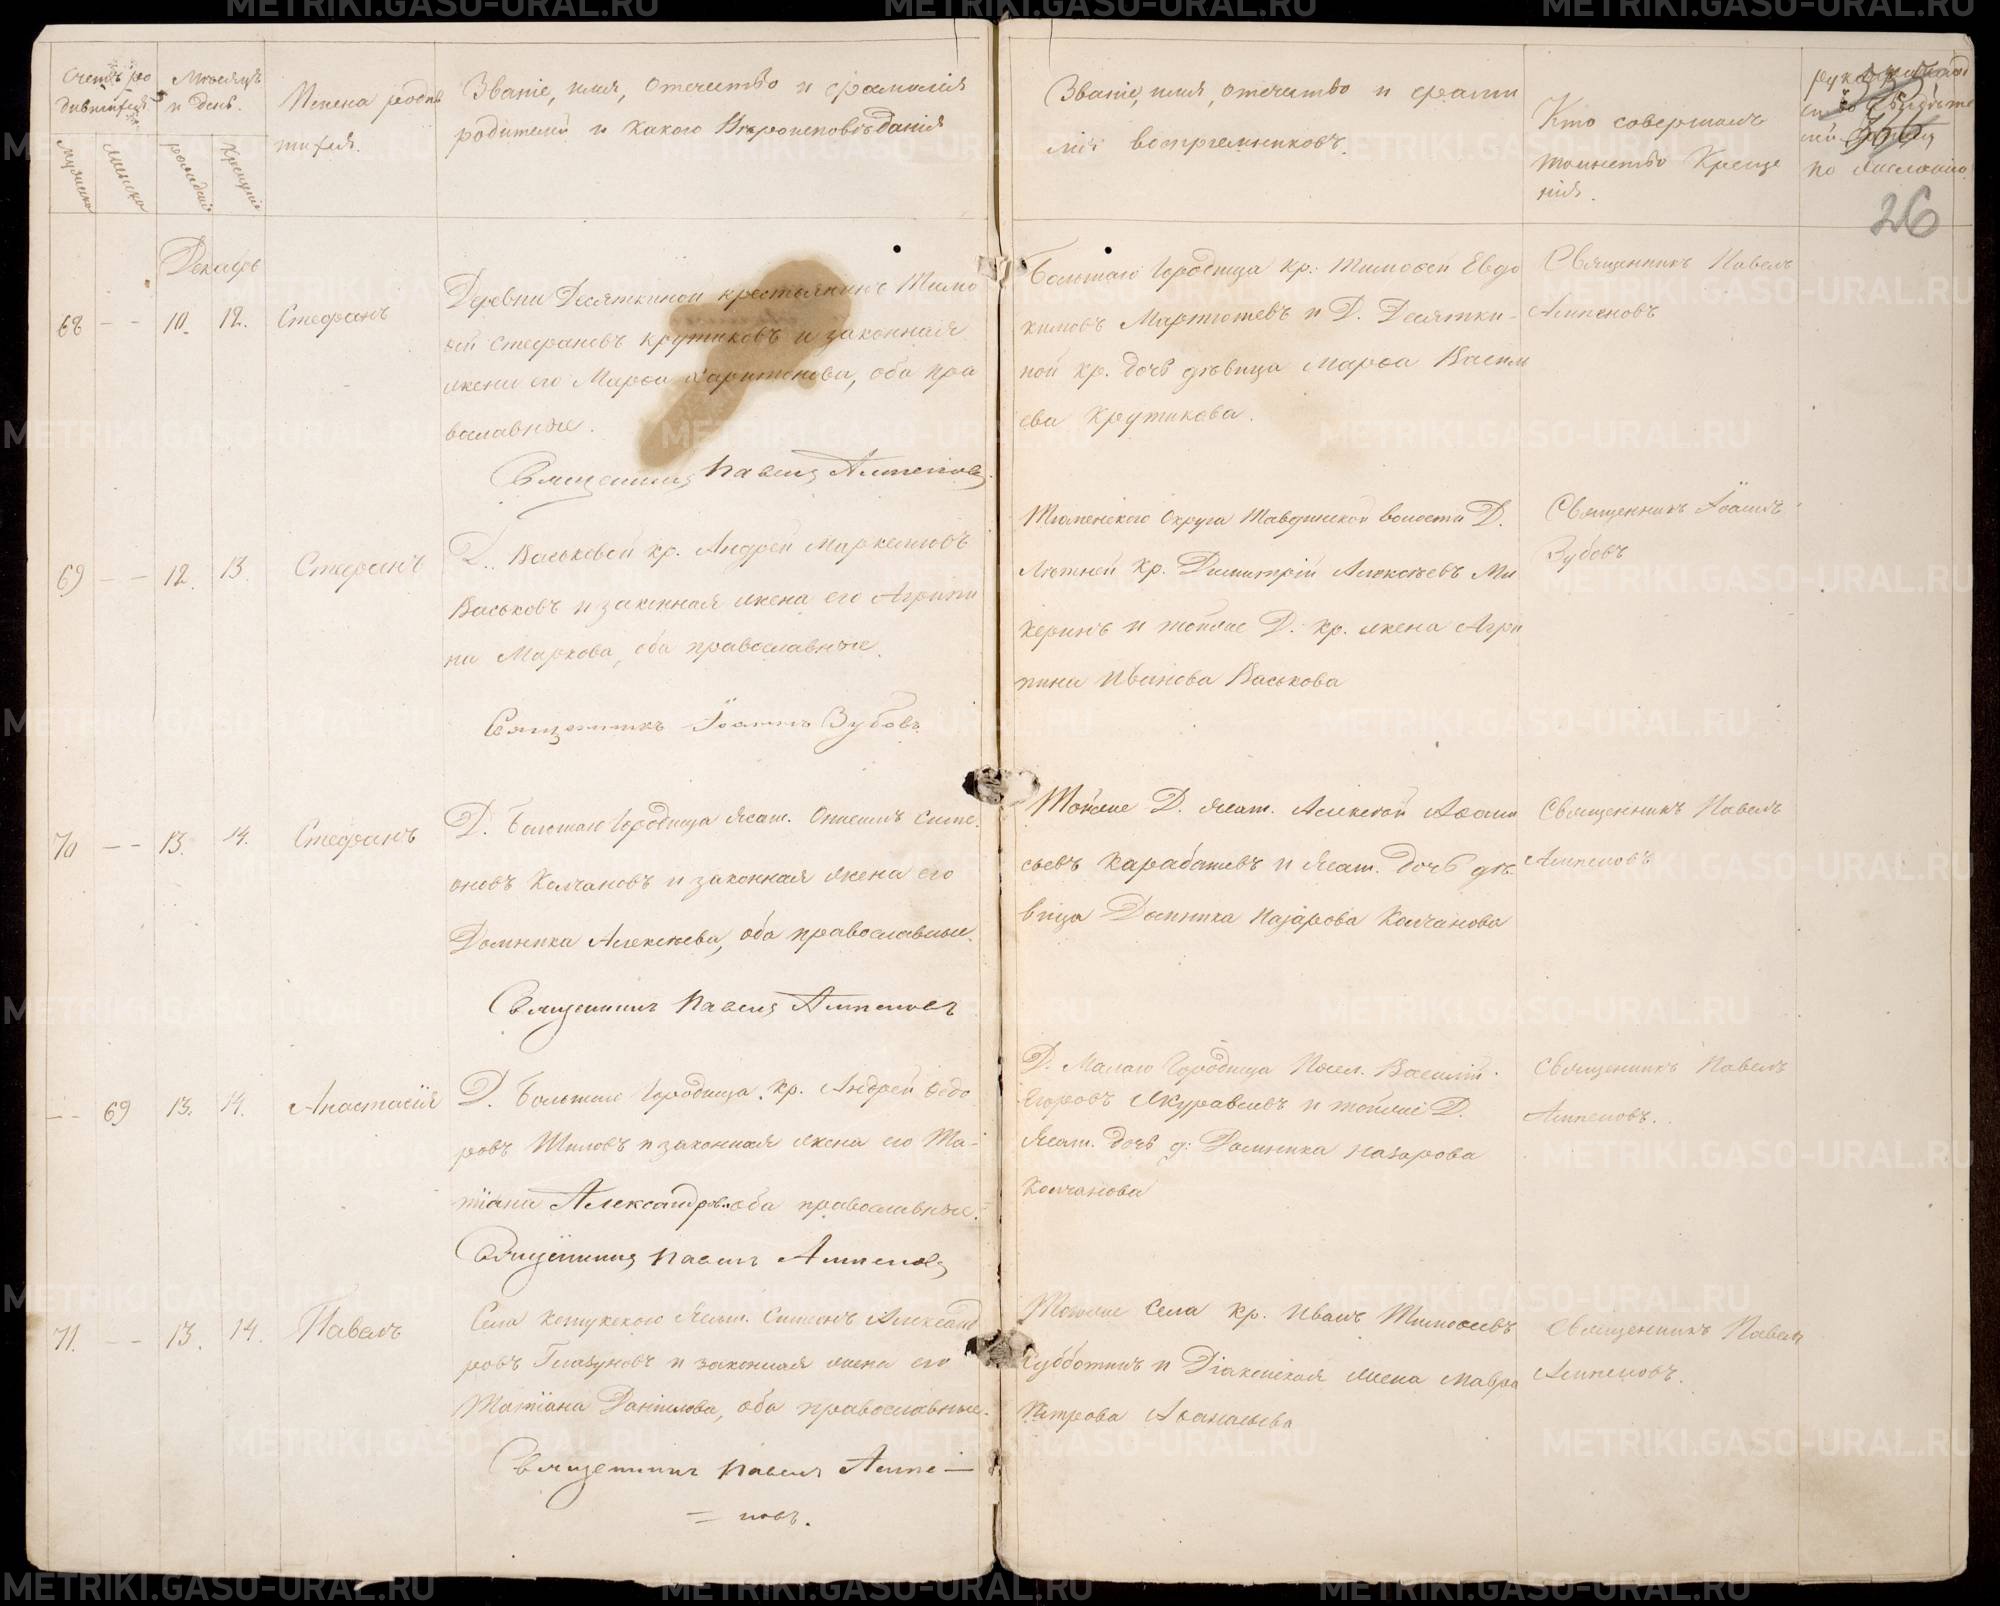 Счетъ ро
дившихся
Мѣсяцъ
и день.
мужеска
женска
рожденія
крещенія
Имена родив
шихся.
Званіе, имя, отчество и фамилія
родителей и какого Вѣроисповѣданія
Званіе, имя, отчество и фами
лія воспріемниковъ.
Кто совершалъ
таинство Креще
нія.
по желанію.
26
Декабрь
68 - - 10. 12. Стефанъ
Деревни Десяткиной крестьянинъ Тимо
ѳей Стефановъ Крутиковъ и законная
жена его Марѳа Харитонова, оба пра
вославные.
Священникъ Павелъ
Большаго Городища кр. Тимоѳей Евдо
кимовъ Мартюшевъ и Д. Десятки-
ной кр. дочь дѣвица Марѳа Василь
ева Крутикова.
Священникъ Павелъ
69 - - 12. 13. Стефанъ
Д. Васьковой кр. Андрей Маркелловъ
Васьковъ и законная жена его Агрипи
на Маркова, оба православные.
Священникъ Іоаннъ Зубовъ
Тюменскаго Округа Тавдинской волости Д.
кр. Димитрій Алексѣевъ Ми
херинъ и тойже Д. кр. жена Агрип
пина Иванова Васькова
Священникъ Іоаннъ
Зубовъ
70 - - 13. 14. Стефанъ
Д. Большаго Городища Ясаш. Онисимъ Симе
оновъ Колчановъ и законная жена его
Домника Алексѣева, оба православные.
Священникъ Павелъ
Тойже Д. Ясаш. Алексѣй Аѳана
сьевъ Карабашевъ и Ясаш. дочь дѣ
вица Домника Назарова Колчанова
Священникъ Павелъ
- - 69 13. 14. Анастасія
Д. Большаго Городища кр. Андрей Ѳедо
ровъ Шиловъ и законная жена его Та-
тіана Александрова оба православные.
Священникъ Павелъ
Д. Малаго Городища Посел. Василій
Егоровъ Журавлевъ и тойже Д.
Ясаш. дочь д. Домника Назарова
Колчанова
Священникъ Павелъ
71. - - 13. 14. Павелъ
Села Кошукскаго Ясаш. Симеонъ Александ
ровъ Глазуновъ и законная жена его
Татіана Данилова, оба православные.
Священникъ Павелъ
Тогоже Села кр. Иванъ Тимоѳеевъ
Субботинъ и Діаконская жена Мавра
Петрова Аѳанасьева
Священникъ Павелъ
METRIKI.GASO-URAL.RU